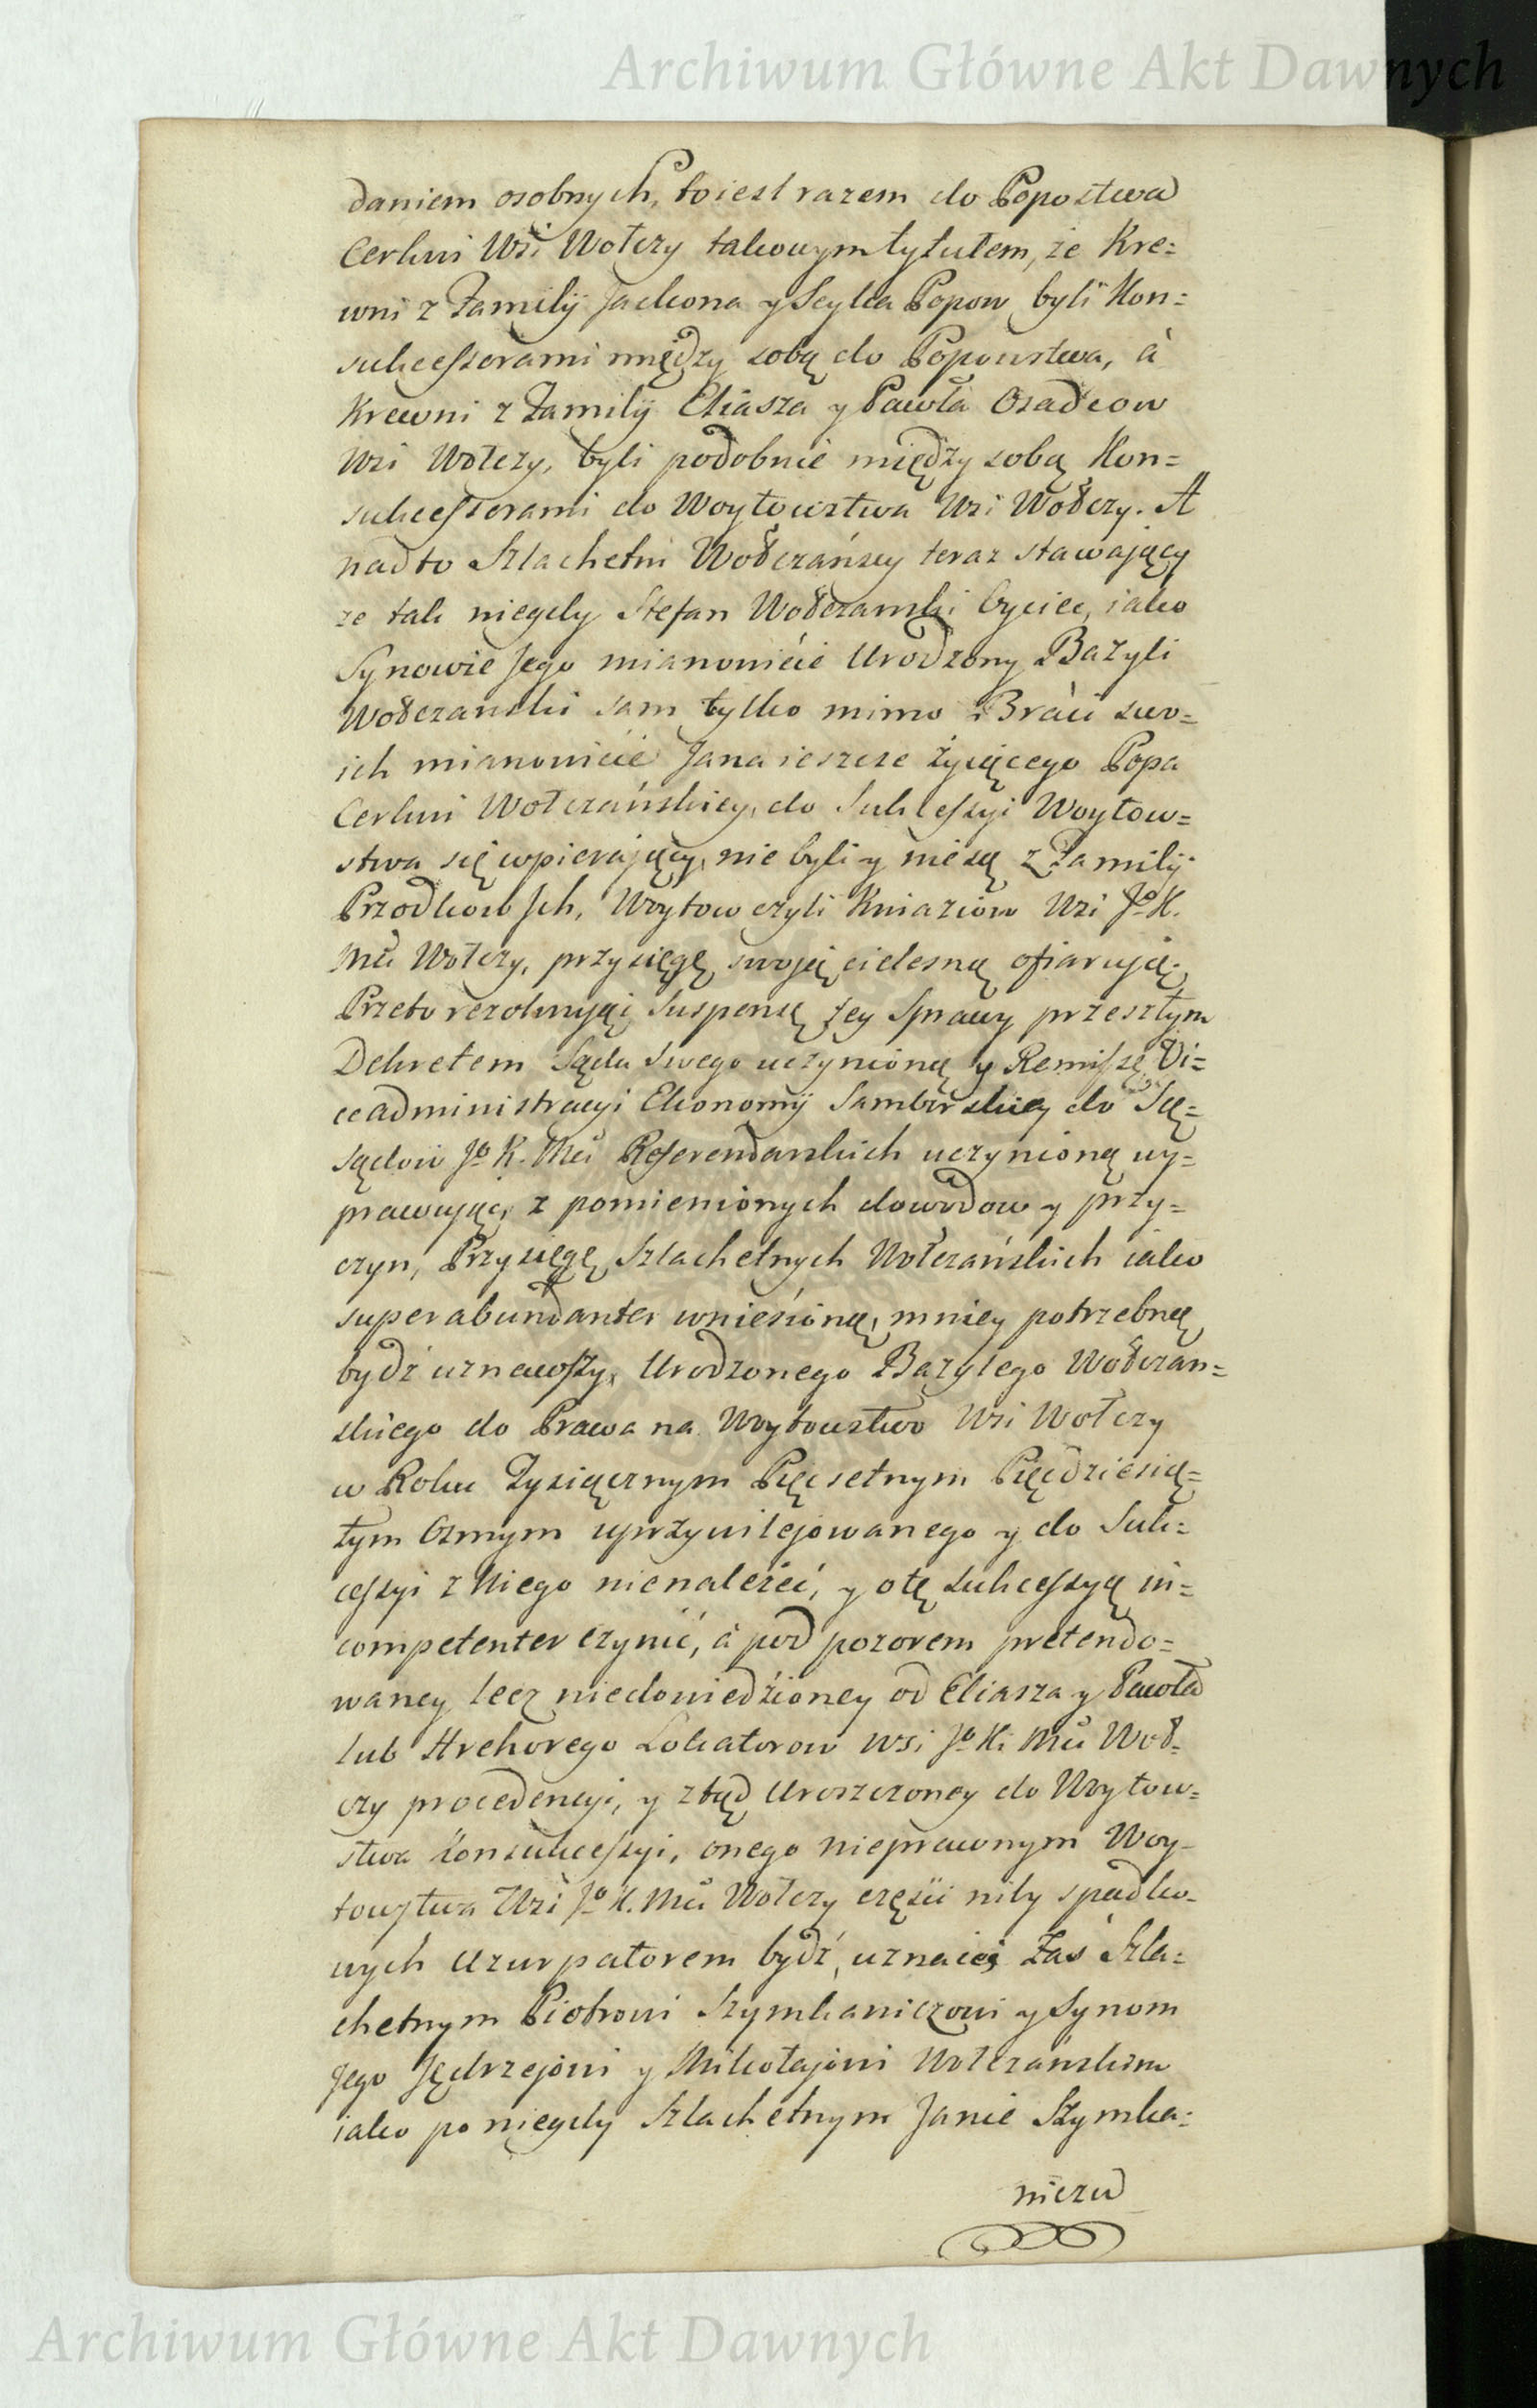 Archiwum Główne Akt Dawnych
daniem osobnych, toiest razem do Popostwa
Cerkwi Wsi Wołczy takowym tytułem, że Kre=
wni z Familij Jackona y Seyka Popow byli Kon=
sukcessorami między sobą do Popowstwa, à
Krewni z Familij Eliasza y Pawła Osadcow
Wsi Wołczy, byli podobnie między sobą Kon=
sukcessorami do Woytowstwa Wsi Wołczy. A
nadto Szlachetni Wołczańscy teraz stawaiący
że tak niegdy Stefan Wołczanski Oyciec, iako
Synowie Jego mianowicie Urodzony Bazyli
Wołczanski sam tylko mimo Braci swo=
ich mianowicie Jana ieszcze żyiącego Popa
Cerkwi Wołczańskiey, do Sukcessyi Woytow=
stwa się wpieraiący, nie byli y nie są z Familij
Przodkow Jch, Woytow czyli Kniaziow Wsi Jo K.
Mci Wołczy, przysięgę swoję cielesną ofiaruią.
Przeto rezolwuiąc Suspensę tey Sprawy przeszłym
Dekretem Sądu Swego uczynioną y Remissę Vi=
ceadministracyi Ekonomij Samborskiey do Są=
sądow Jo K. Mci Referendarskich uczynioną wy=
prawuiąc, z pomienionych dowodow y przy=
czyn, Przysięgę Szlachetnych Wołczańskich iako
superabundanter wniesioną, mniey potrzebną
bydź uznawszy, Urodzonego Bazylego Wołczan=
skiego do Prawa na Woytowstwo Wsi Wołczy
w Roku Tysiącznym Pięcsetnym Pięcdziesią=
tym Osmym uprzywilejowanego y do Suk=
cessyi z Niego nienależeć, y otę sukcessyą in=
competenter czynić, à pod pozorem pretendo=
waney lecz niedowiedzioney od Eliasza y Pawła
lub Hrehorego Lokatorow wsi Jo K. Mci Woł=
czy procedencyi, y ztąd Uroszczoney do Woytow=
stwa Konsukcessyi, onego nieprawnym Woy=
towstwa Wsi Jo K. Mci Wołczy części niby spadko=
wych Uzurpatorem bydź, uznaie; Zaś Szla=
chetnym Piotrowi Szymkaniczowi y Synom
Jego Jędrzejowi y Mikołajowi Wołczańskim
iako po niegdy Szlachetnym Janie Szymka=
niczu
Archiwum Główne Akt Dawnych